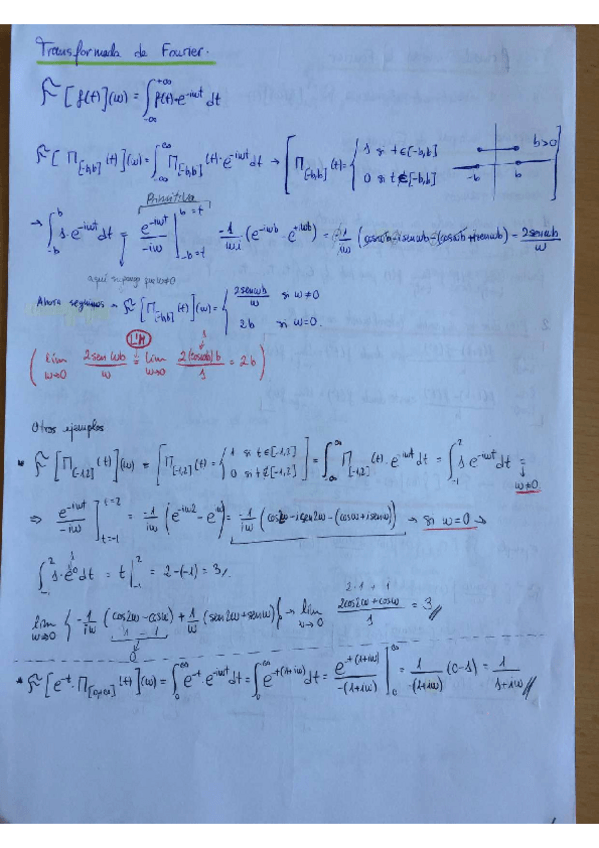 Transformada de Fourier.
F[f(t)](w) = ∫_{-∞}^{+∞} f(t)·e^{-iwt} dt
F[Π_{[-b,b]}(t)](w) = ∫_{-∞}^{∞} Π_{[-b,b]}(t)·e^{-iwt} dt → [Π_{[-b,b]}(t) = { 1 si t∈[-b,b] ; 0 si t∉[-b,b] -b b b>0 ]
Primitiva
→ ∫_{-b}^{b} 1·e^{-iwt} dt = e^{-iwt}/-iw |_{-b=t}^{b=t} -1/wi (e^{-iwb} - e^{+iwb}) = -1/iw (coswb - isenwb - (coswb + isenwb)) = 2senwb/w
aquí supongo que w≠0
Ahora seguimos → F[Π_{[-b,b]}(t)](w) = { 2senwb/w si w≠0 ; 2b si w=0.
L'H
( lim_{w→0} 2sen(wb)/w = lim_{w→0} 2(coswb)b/1 = 2b )
Otros ejemplos
* F[Π_{[-1,2]}(t)](w) = [Π_{[-1,2]}(t) = { 1 si t∈[-1,2] ; 0 si t∉[-1,2] ] = ∫_{-∞}^{∞} Π_{[-1,2]}(t)·e^{-iwt} dt = ∫_{-1}^{2} 1·e^{-iwt} dt =
w≠0
⇒ e^{-iwt}/-iw ]_{t=-1}^{t=2} = -1/iw (e^{-iw2} - e^{iw}) = -1/iw (cos2w - isen2w - (cosw + isenw)) → si w=0 →
∫_{-1}^{2} 1·e^{0} dt = t |_{-1}^{2} = 2-(-1) = 3
2·1 + 1
lim_{w→0} { -1/iw (cos2w - cosw) + 1/w (sen2w + senw) } → lim_{w→0} 2cos2w + cosw/1 = 3
1 - 1
0
* F[e^{-t}·Π_{[0,+∞]}(t)](w) = ∫_{0}^{∞} e^{-t}·e^{-iwt} dt = ∫_{0}^{∞} e^{-t(1+iw)} dt = e^{-t(1+iw)}/-(1+iw) |_{0}^{∞} = 1/-(1+iw) (0-1) = 1/1+iw